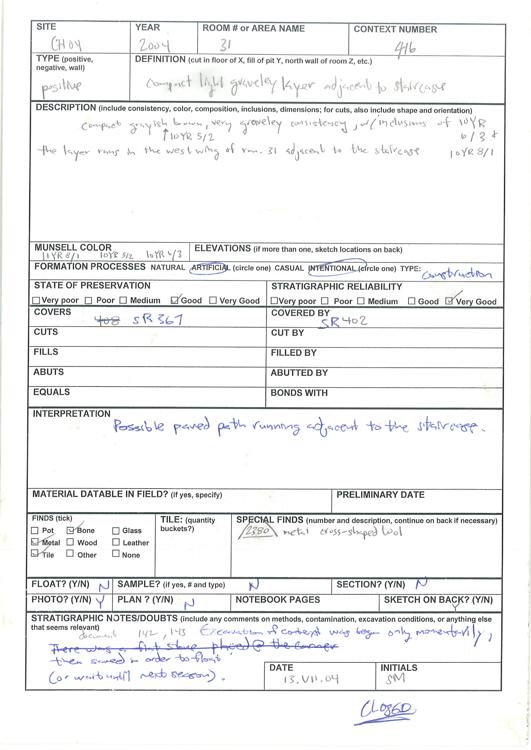 SITE YEAR ROOM # or AREA NAME CONTEXT NUMBER
CHOY 2004 31 416
TYPE (positive, negative, wall) DEFINITION (cut in floor of X, fill of pit Y, north wall of room Z, etc.)
positive compact light graveley layer adjacent to staircase
DESCRIPTION (include consistency, color, composition, inclusions, dimensions; for cuts, also include shape and orientation)
compact grayish brown, very graveley consistency, w/ inclusions of 10YR
↑10YR 5/2 6/3 +
the layer runs in the west wing of rm. 31 adjacent to the staircase 10YR 8/1
MUNSELL COLOR ELEVATIONS (if more than one, sketch locations on back)
10YR 5/2
FORMATION PROCESSES NATURAL ARTIFICIAL (circle one) CASUAL INTENTIONAL (circle one) TYPE: construction
STATE OF PRESERVATION STRATIGRAPHIC RELIABILITY
Very poor Poor Medium Good Very Good Very poor Poor Medium Good Very Good
COVERS 408 SR 367 COVERED BY SR 402
CUTS CUT BY
FILLS FILLED BY
ABUTS ABUTTED BY
EQUALS BONDS WITH
INTERPRETATION
Possible paved path running adjacent to the staircase.
MATERIAL DATABLE IN FIELD? (if yes, specify) PRELIMINARY DATE
FINDS (tick) TILE: (quantity buckets?) SPECIAL FINDS (number and description, continue on back if necessary)
Pot Bone Glass 2380 metal cross-shaped tool
Metal Wood Leather
Tile Other None
FLOAT? (Y/N) N SAMPLE? (if yes, # and type) N SECTION? (Y/N) N
PHOTO? (Y/N) Y PLAN ? (Y/N) N NOTEBOOK PAGES SKETCH ON BACK? (Y/N) Y
STRATIGRAPHIC NOTES/DOUBTS (include any comments on methods, contamination, excavation conditions, or anything else
that seems relevant) document 142, 143 Excavation of context was begun only momentarily,
There was a flat stone placed @ the corner
then saved in order to float
(or wait until next season). DATE INITIALS
13.VII.04 SM
CLOSED